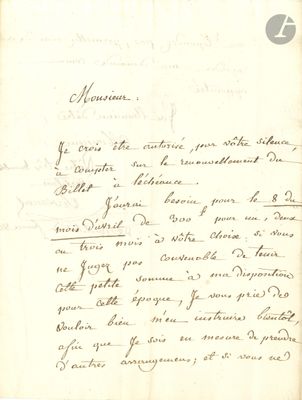 Monsieur :
Je crois être autorisé, par vôtre silence,
à compter sur le renouvellement du
Billet à l'échéance.
J'aurai besoin pour le 8 du
mois d'avril de 500 f pour un, deux
ou trois mois à vôtre choix : si vous
ne Jugez pas convenable de tenir
Cette petite somme à ma disposition
pour cette époque, Je vous prie de
vouloir bien m'en instruire bientôt,
afin que Je sois en mesure de prendre
d'autres arrangemens; et si vous ne